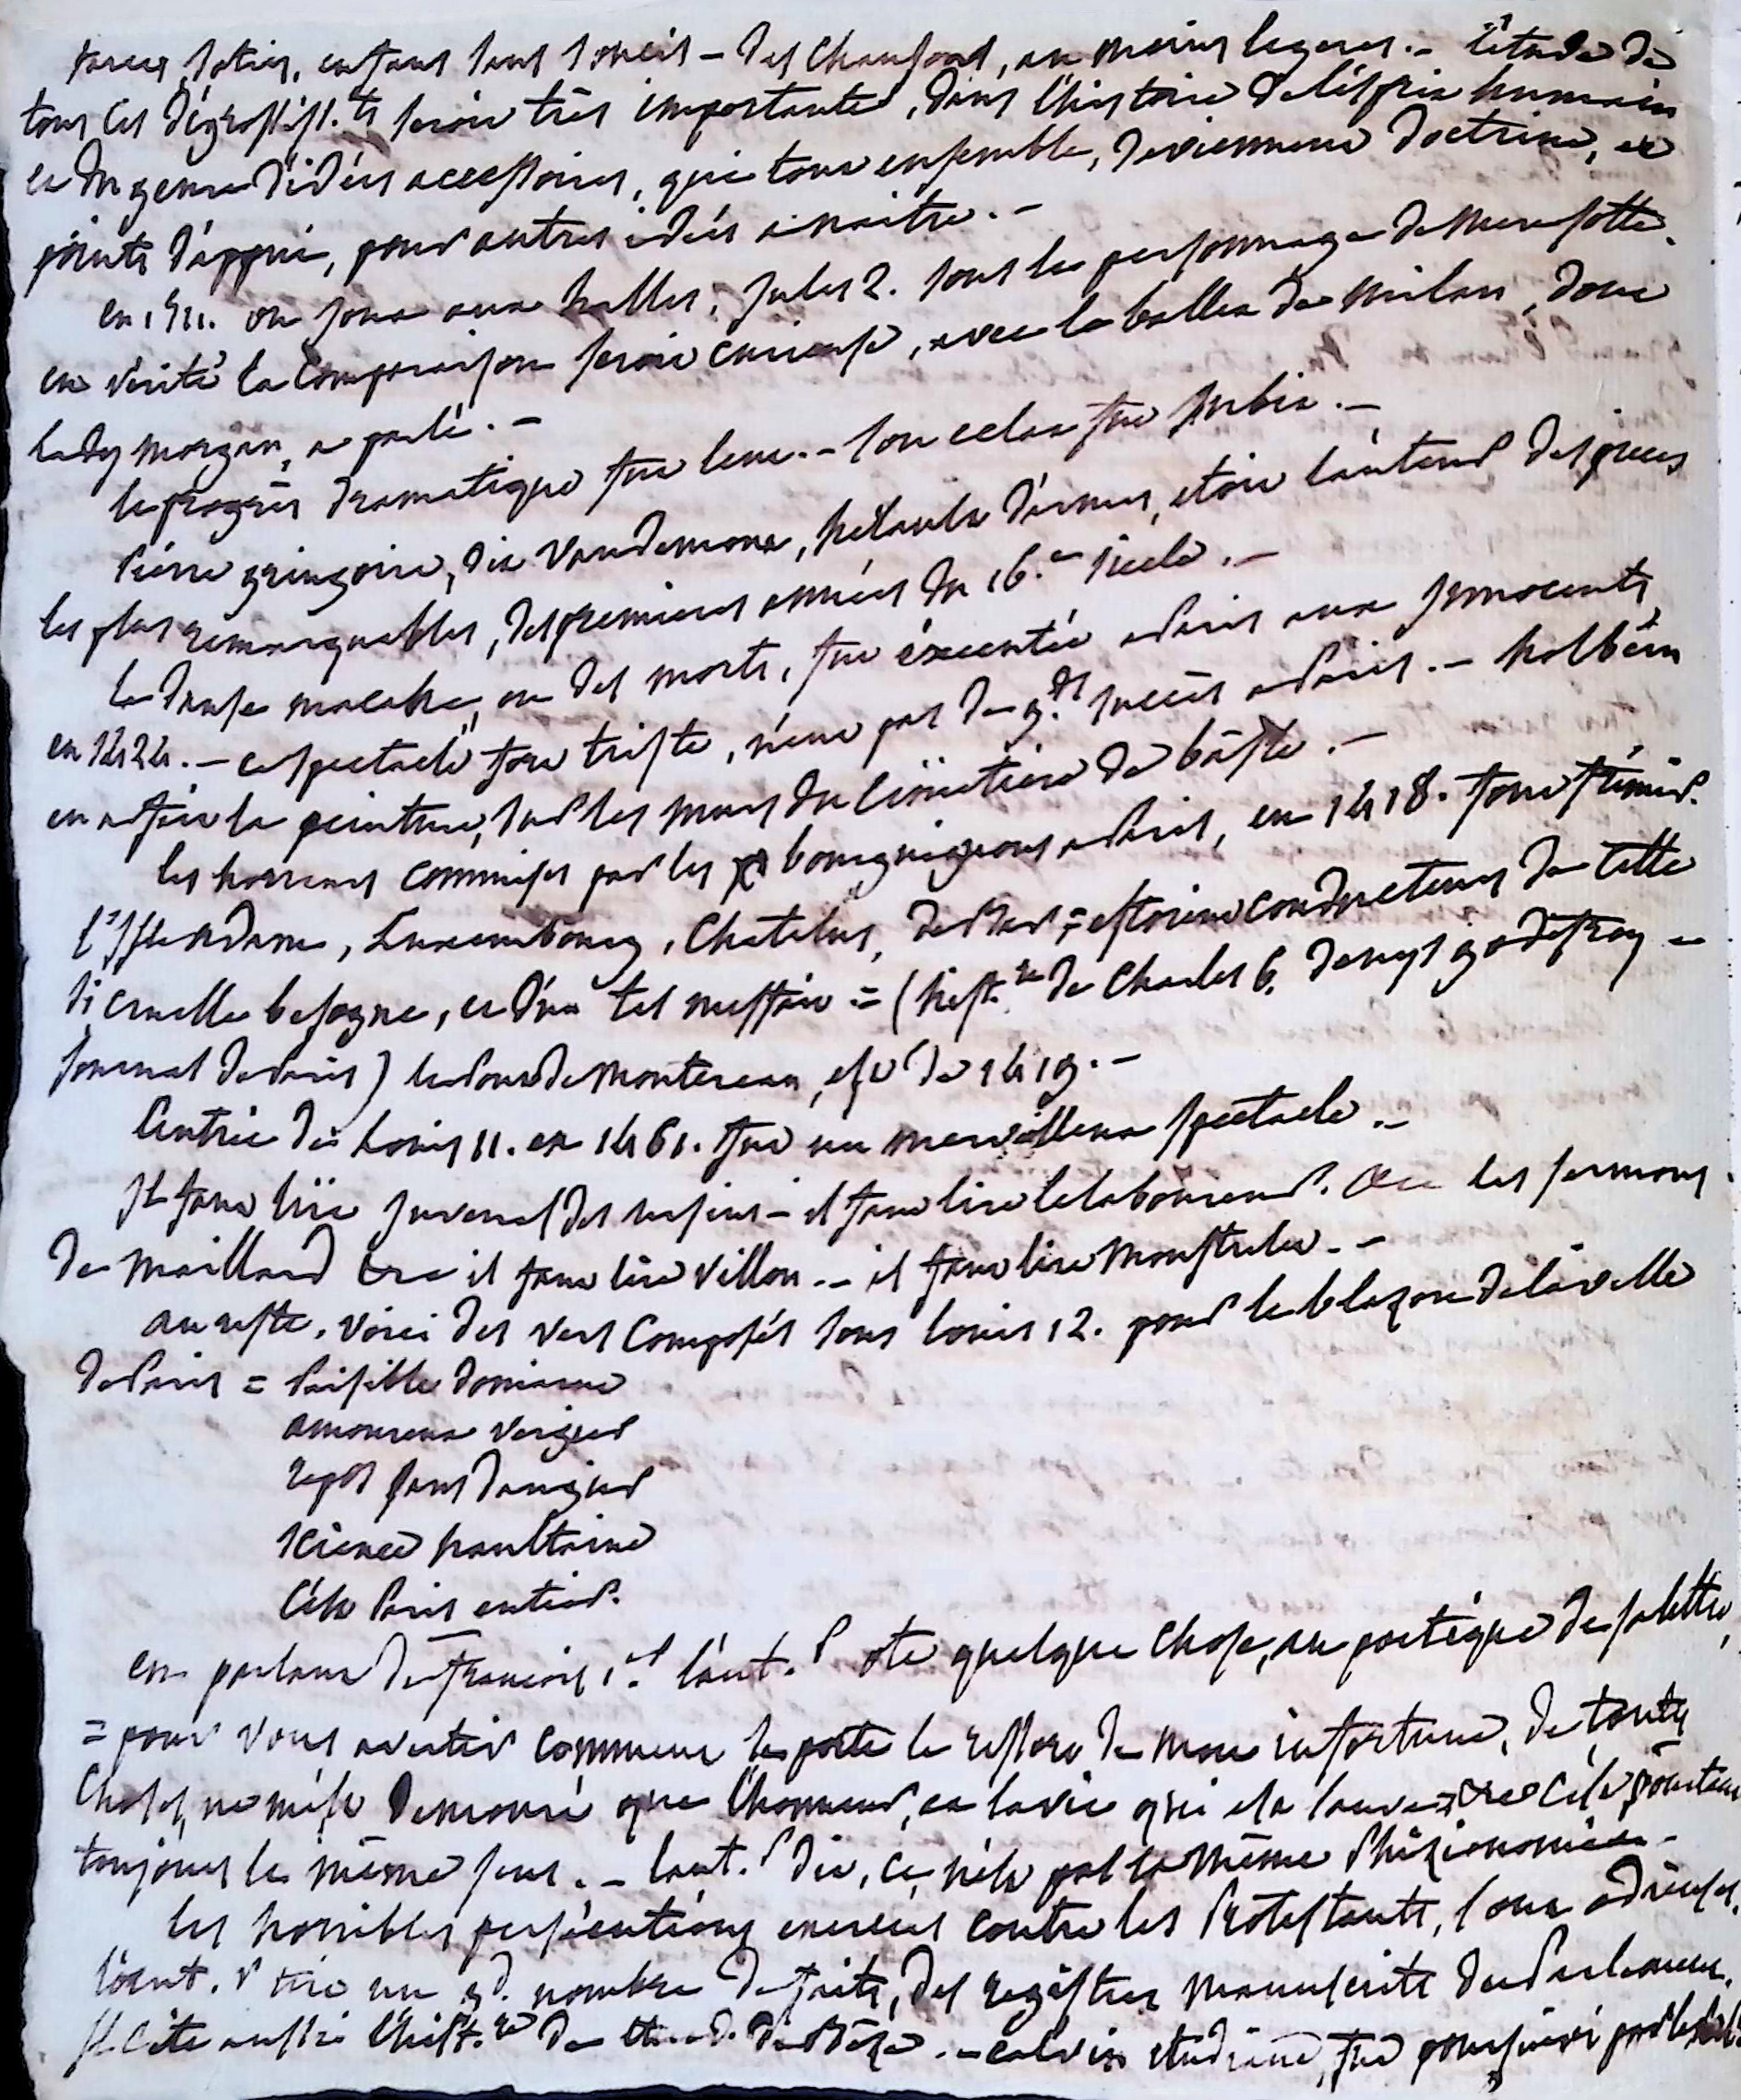 farces, soties, enfans sans soucis – des chansons, au moins legeres. – l'étude de
tous ces dégrossiss.ts seroit très importante, dans l'histoire de l'esprit humain
et du genre d'idées accessoires, qui tour ensemble, deviennent doctrine, et
points d'appui, pour autres idées a naitre. –
en 1511. on joua aux halles, Jules 2. sous le personnage de Mere sotte.
en vérité la comparaison seroit curieuse, avec le ballet de Milan, dont
Lady Morgan, a parlé. –
le progrès dramatique fut lent. – son eclat fut subit. –
Pierre gringoire, dit Vaudemont, hérault d'armes, etoit l'auteur des pieces
les plus remarquables, des premieres années du 16.e siecle. –
la danse macabre, ou des morts, fut éxecutée a Paris aux Innocents,
en 1424. – ce spectacle fort triste, n'eut pas de g.ds succès a Paris. – holbein
en a fait la peinture, sur les murs du cimetiere de bâsle. –
les horreurs commises par les bourguignons a Paris, en 1418. font frémir.
l'Isle Adam, Luxembourg, Chatelus, de Bar, = estoient conducteurs de telle
si cruelle besogne, et d'un tel meffait = (hist.re de Charles 6. denys godefroy –
Journal de Paris) le pont de Montereau, est de 1419. –
L'entrée de Louis 11. en 1461. fut un merveilleux spectacle. –
Il faut lire Juvenel des ursins – il faut lire le laboureur. les sermons
de Maillard &c il faut lire Villon. – il faut lire Monstrelet. –
au reste, voici des vers composés sous Louis 12. pour le blazon de la ville
de Paris = Paisible domaine
amoureux vergier
repos sans dangier
science haultaine
C'est Paris entier.
en parlant de François 1.er l'aut.r ote quelque chose, au poétique de sa lettre,
= pour vous avertir comment se porte le ressort de mon infortune, de toutes
choses, ne m'est demouré que l'honneur, et la vie qui est sauve = &c c'est pourtant
toujours le même sens. – l'aut.r dit, ce n'est pas la même Phizionomie –
les horribles persécutions exercées contre les Protestants, sont odieuses.
l'aut.r tire un gd. nombre de faits, des registres manuscrits du Parlement.
Il cite aussi l'hist.re de Théod. de Bèze. – calvin étudiant, fut poursuivi par le